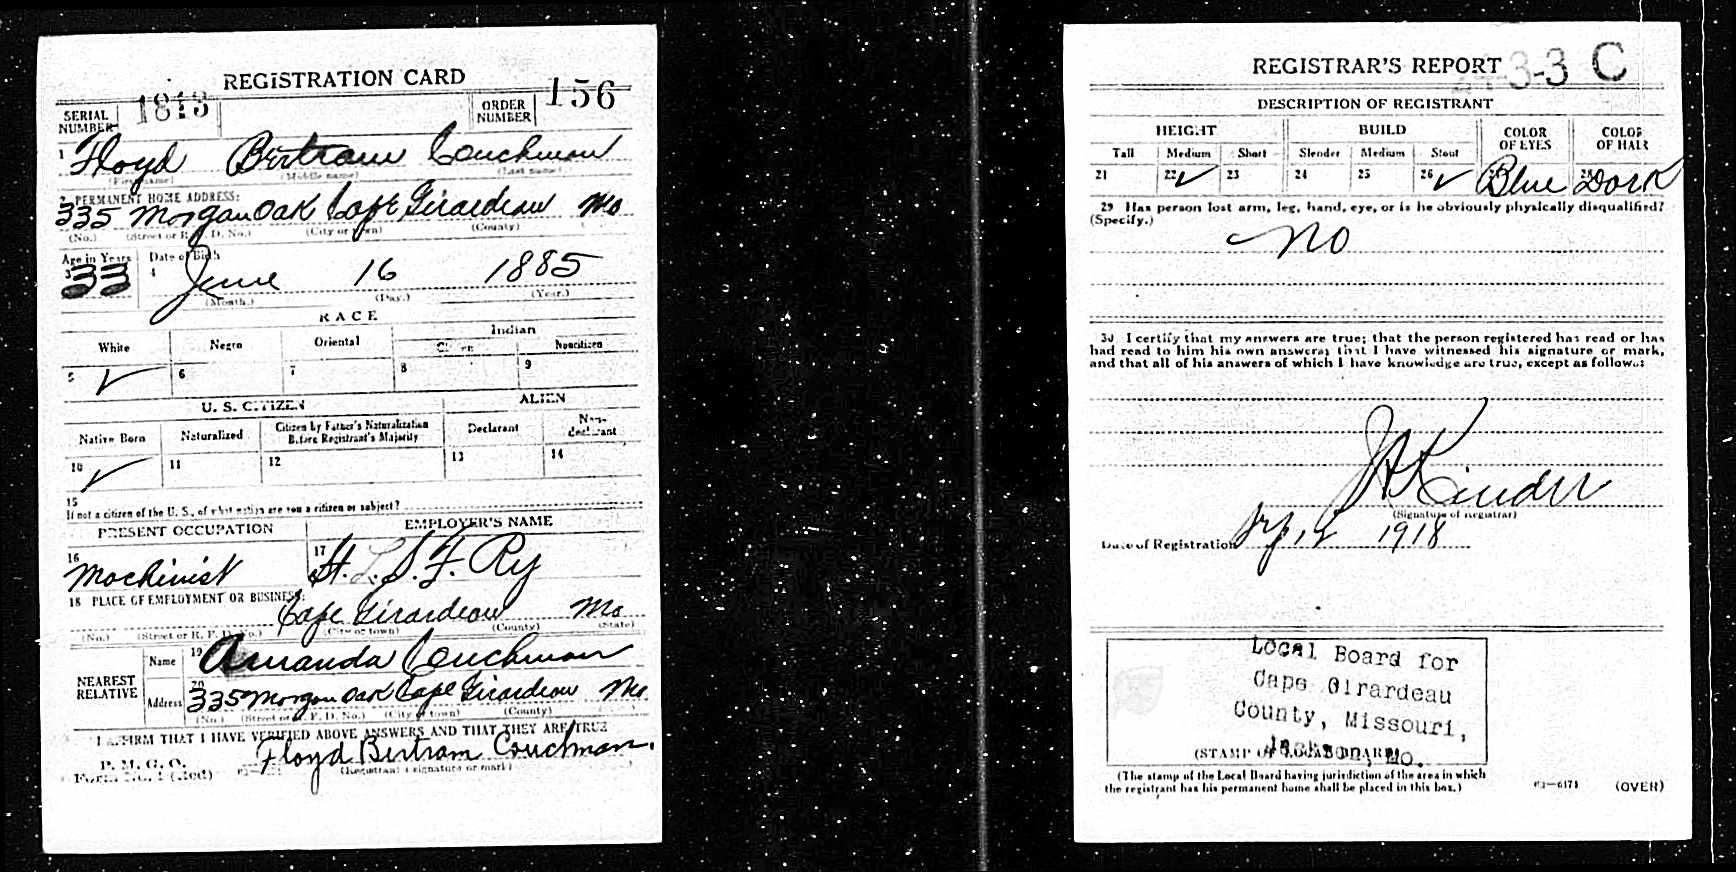 REGISTRATION CARD
SERIAL NUMBER 1813 ORDER NUMBER 156
1 Floyd Bertram Couchman
(First name) (Middle name) (Last name)
2 PERMANENT HOME ADDRESS:
335 Morgan Oak Cape Girardeau Mo
(No.) (Street or R. F. D. No.) (City or town) (County)
Age in Years Date of Birth
3 33 4 June 16 1885
(Month.) (Day.) (Year.)
RACE
White Negro Oriental Indian
Citizen Noncitizen
5 ✓ 6 7 8 9
U. S. CITIZEN ALIEN
Native Born Naturalized Citizen by Father's Naturalization Before Registrant's Majority Declarant Non-declarant
10 ✓ 11 12 13 14
15
If not a citizen of the U. S., of what nation are you a citizen or subject?
PRESENT OCCUPATION EMPLOYER'S NAME
16 Machinist 17 St. L. S. F. Ry
18 PLACE OF EMPLOYMENT OR BUSINESS:
Cape Girardeau Mo
(No.) (Street or R. F. D. No.) (City or town) (County) (State)
NEAREST RELATIVE Name 19 Amanda Couchman
Address 20 335 Morgan Oak Cape Girardeau Mo
(No.) (Street or R. F. D. No.) (City or town) (County)
I AFFIRM THAT I HAVE VERIFIED ABOVE ANSWERS AND THAT THEY ARE TRUE
P. M. G. O.
Form No. 1 (Red) Floyd Bertram Couchman.
(Registrant's signature or mark)
REGISTRAR'S REPORT
3-3 C
DESCRIPTION OF REGISTRANT
HEIGHT BUILD COLOR OF EYES COLOR OF HAIR
Tall Medium Short Slender Medium Stout
21 22 ✓ 23 24 25 26 ✓ Blue Dark
29 Has person lost arm, leg, hand, eye, or is he obviously physically disqualified?
(Specify.)
No
30 I certify that my answers are true; that the person registered has read or has
had read to him his own answers; that I have witnessed his signature or mark,
and that all of his answers of which I have knowledge are true, except as follows:
J A Kinder
(Signature of Registrar)
Date of Registration Sep. 12 1918
Local Board for
Cape Girardeau
County, Missouri,
Jackson, Mo.
(STAMP OF LOCAL BOARD)
(The stamp of the Local Board having jurisdiction of the area in which
the registrant has his permanent home shall be placed in this box.)
03—6171 (OVER)